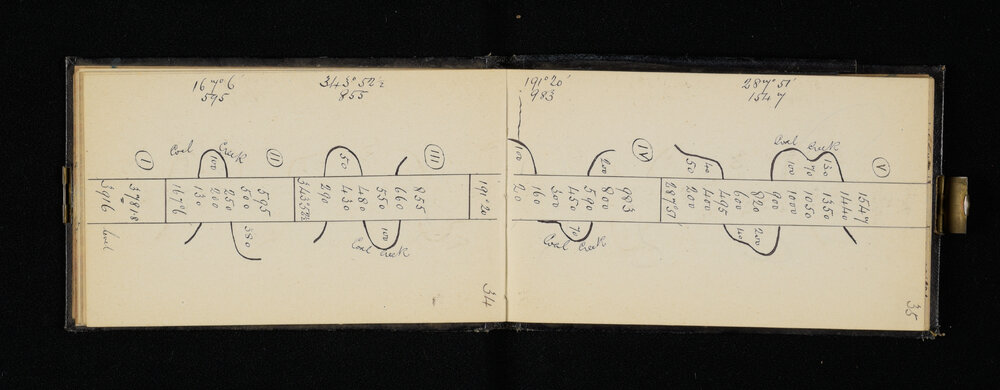 167°6'
595
343°52½
855
191°20'
983
287°51'
1547
I
3916
37818
Coal Creek
100
167°6
130
200
250
500
595
380
II
343°52½
290
430
480
550
660
855
50
100
Coal Creek
III
191°20
20
160
300
450
590
800
983
100
200
70
Coal Creek
IV
287°51
200
400
495
600
820
900
1000
1050
1350
1440
1547
50
40
100
70
130
Coal Creek
40
200
V
34
35